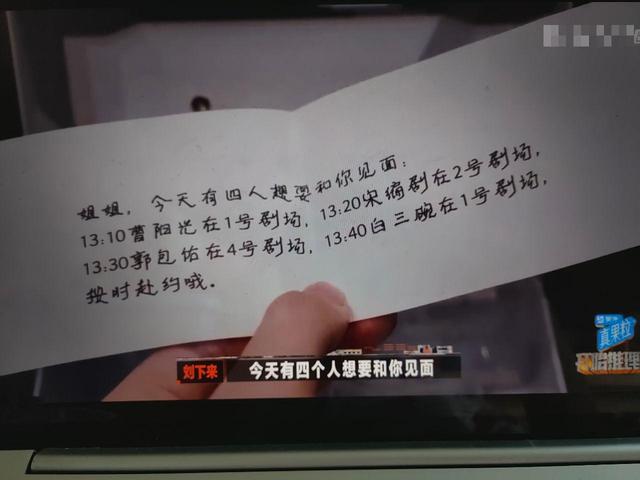 姐姐，今天有四人想要和你见面：
13:10曹阳光在1号剧场，13:20宋编剧在2号剧场，
13:30郭包佑在4号剧场，13:40白三碗在1号剧场，
按时赴约哦。
真果粒
推理
刘下来 今天有四个人想要和你见面